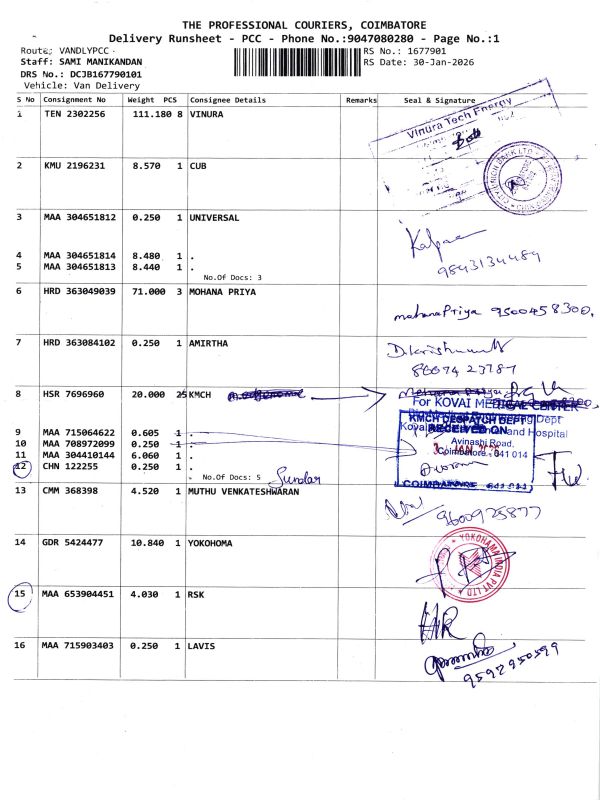 THE PROFESSIONAL COURIERS, COIMBATORE
Delivery Runsheet - PCC - Phone No.:9047080280 - Page No.:1
Route: VANDLYPCC
RS No.: 1677901
Staff: SAMI MANIKANDAN
RS Date: 30-Jan-2026
DRS No.: DCJB167790101
Vehicle: Van Delivery
S No Consignment No Weight PCS Consignee Details Remarks Seal & Signature
1 TEN 2302256 111.180 8 VINURA
Vinura Tech Energy
2 KMU 2196231 8.570 1 CUB
3 MAA 304651812 0.250 1 UNIVERSAL
Kalpaa
9843134489
4 MAA 304651814 8.480 1 .
5 MAA 304651813 8.440 1 .
No.Of Docs: 3
6 HRD 363049039 71.000 3 MOHANA PRIYA
mohanaPriya 9500458300.
7 HRD 363084102 0.250 1 AMIRTHA
86074 23787
8 HSR 7696960 20.000 25 KMCH
For KOVAI MEDICAL CENTER
and Hospital
KMCH DESPATCH DEPT
RECEIVED ON
Avinashi Road,
Coimbatore - 641 014
COIMBATORE
9 MAA 715064622 0.605 1 .
10 MAA 708972099 0.250 1 .
11 MAA 304410144 6.060 1 .
12 CHN 122255 0.250 1 .
No.Of Docs: 5
Sundar
13 CMM 368398 4.520 1 MUTHU VENKATESHWARAN
9600925877
14 GDR 5424477 10.840 1 YOKOHOMA
YOKOHAMA INDIA PVT LTD
15 MAA 653904451 4.030 1 RSK
16 MAA 715903403 0.250 1 LAVIS